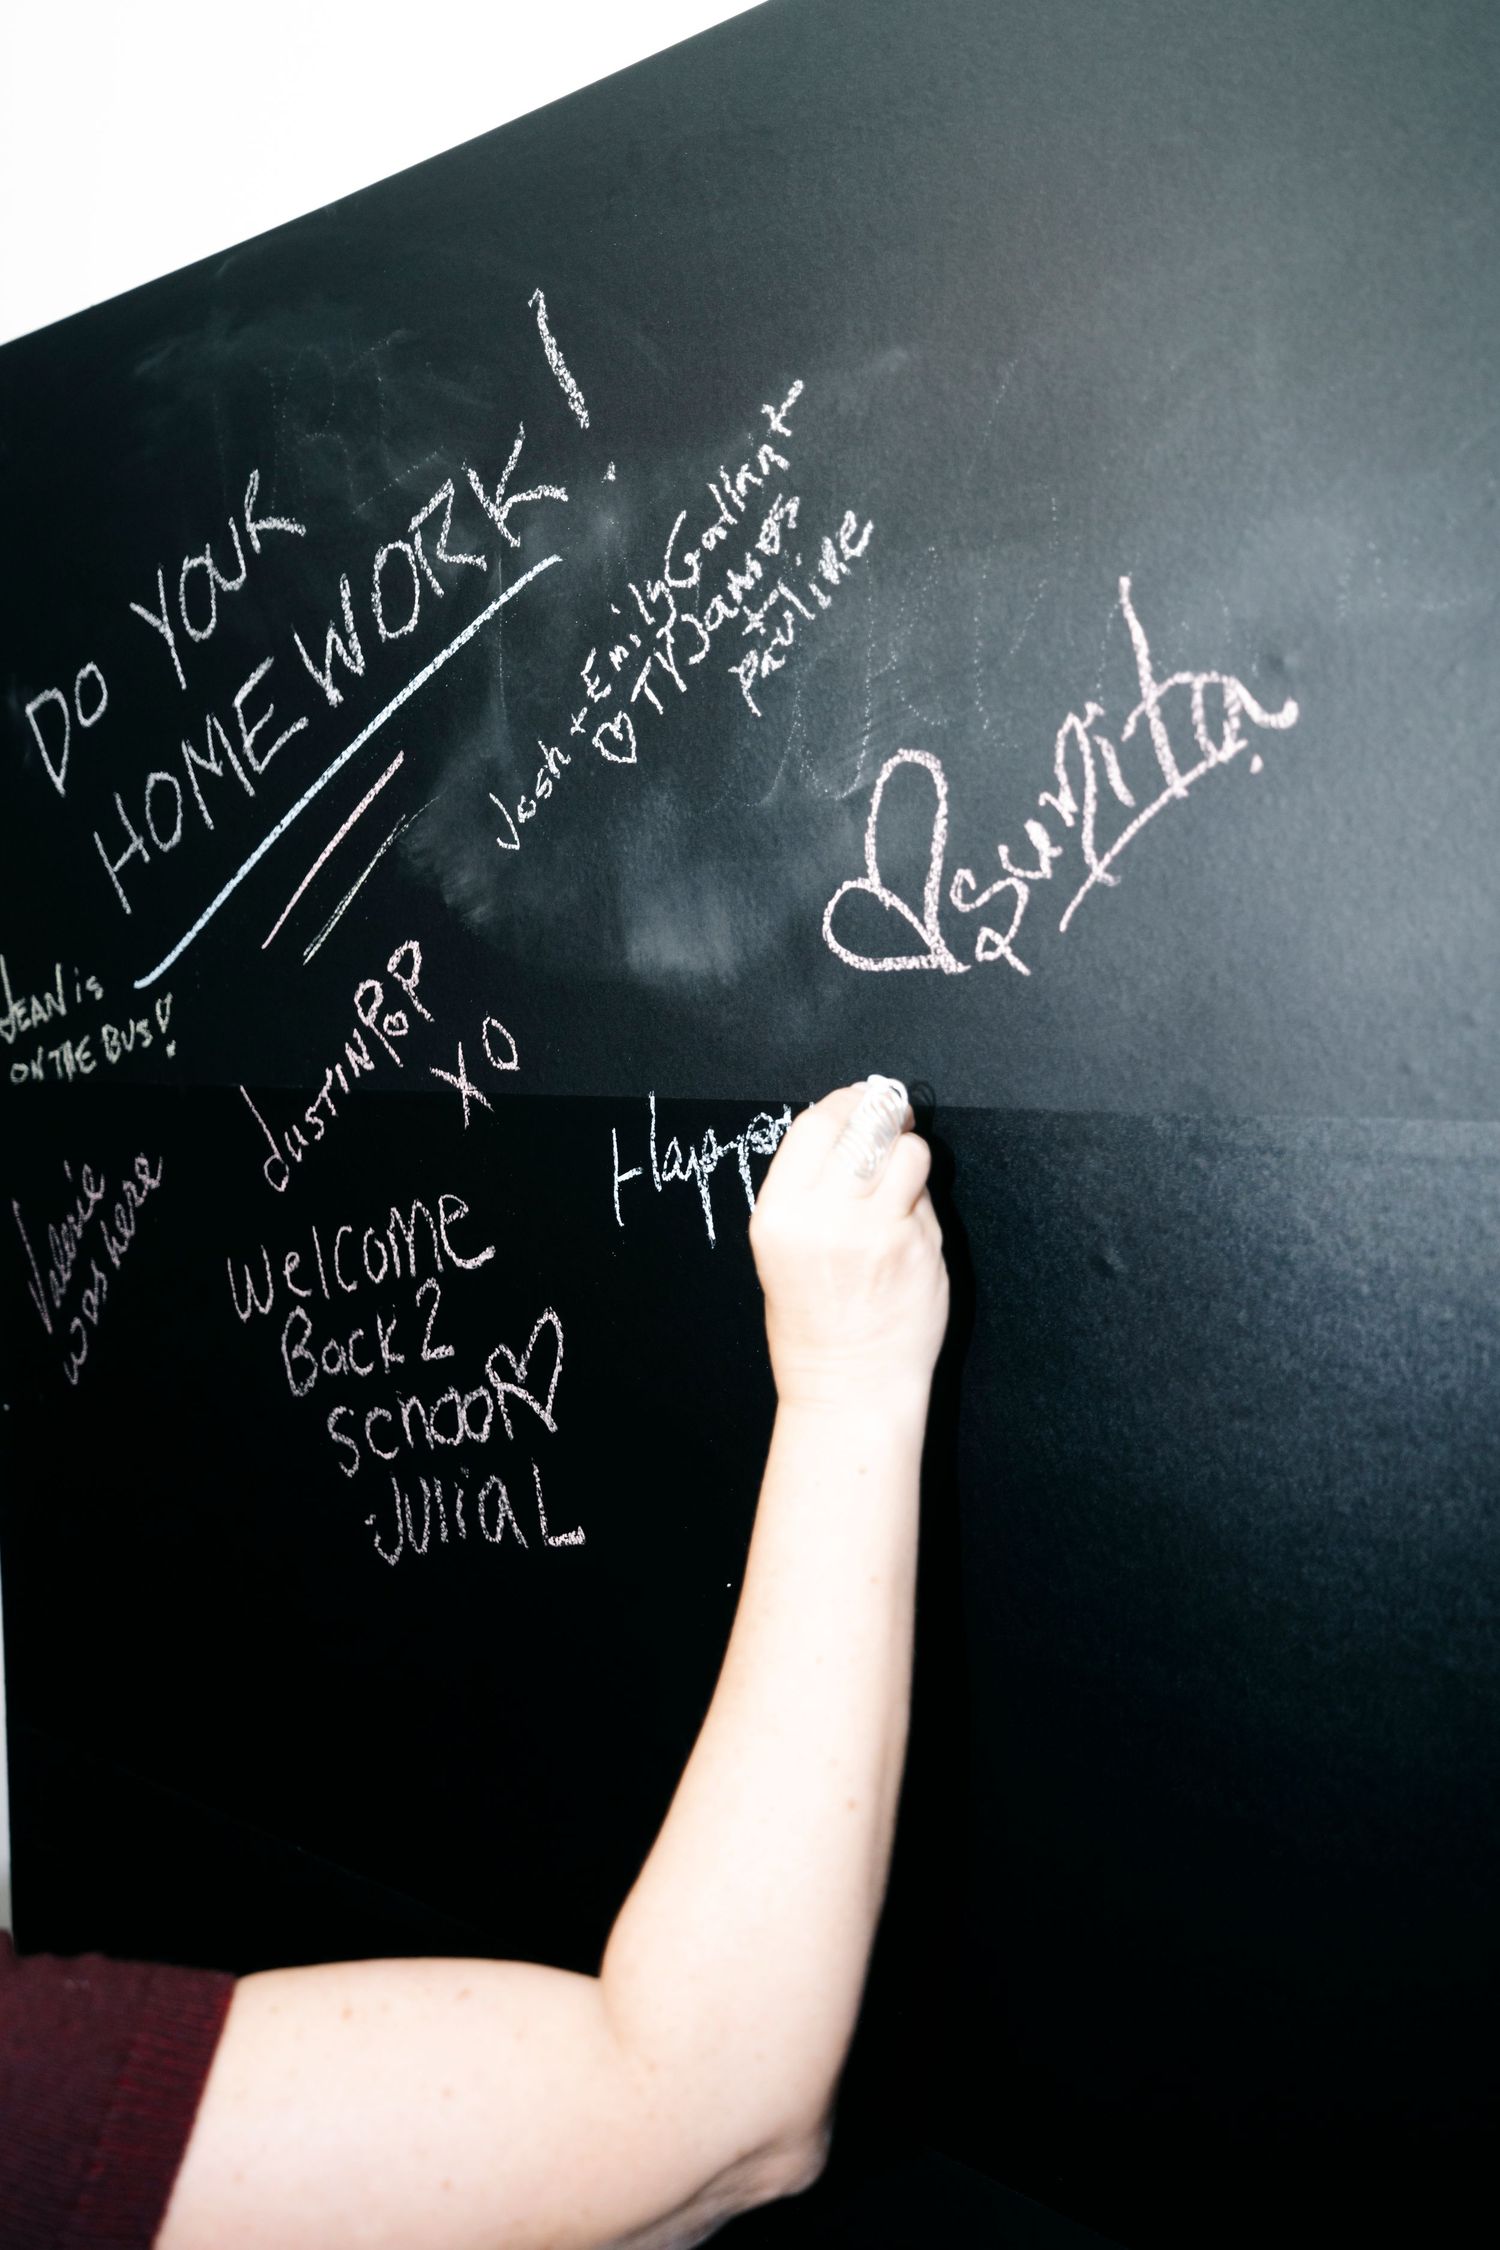 DO YOUR
HOMEWORK!
Josh + Emily Gallina +
♡ TY James
+
Pauline
♡ Sunita
JEAN is
ON THE BUS!
JUSTIN POP
XO
Happy
Valerie
was here
Welcome
Back 2
school ♡
Julia L